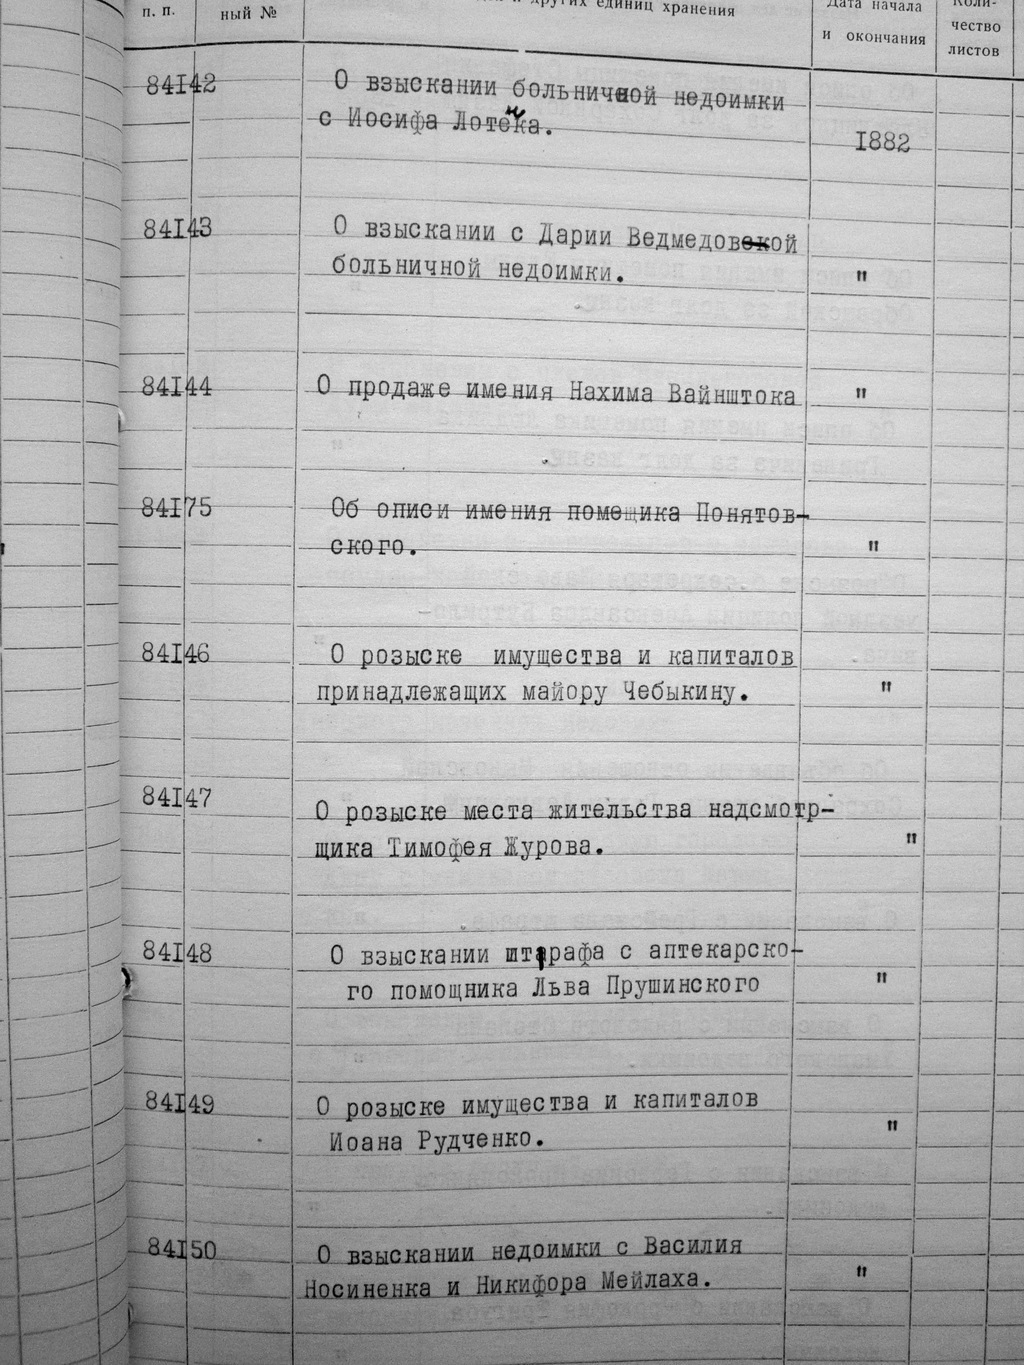 п. п.
ный №
и других единиц хранения
Дата начала
и окончания
Коли-
чество
листов
84I42
О взыскании больничной недоимки
с Иосифа Лотейка.
I882
84I43
О взыскании с Дарии Ведмедовой
больничной недоимки.
"
84I44
О продаже имения Нахима Вайнштока
"
84I75
Об описи имения помещика Понятов-
ского.
"
84I46
О розыске имущества и капиталов
принадлежащих майору Чебыкину.
"
84I47
О розыске места жительства надсмотр-
щика Тимофея Журова.
"
84I48
О взыскании штрафа с аптекарско-
го помощника Льва Прушинского
"
84I49
О розыске имущества и капиталов
Иоана Рудченко.
"
84I50
О взыскании недоимки с Василия
Носиненка и Никифора Мейлаха.
"